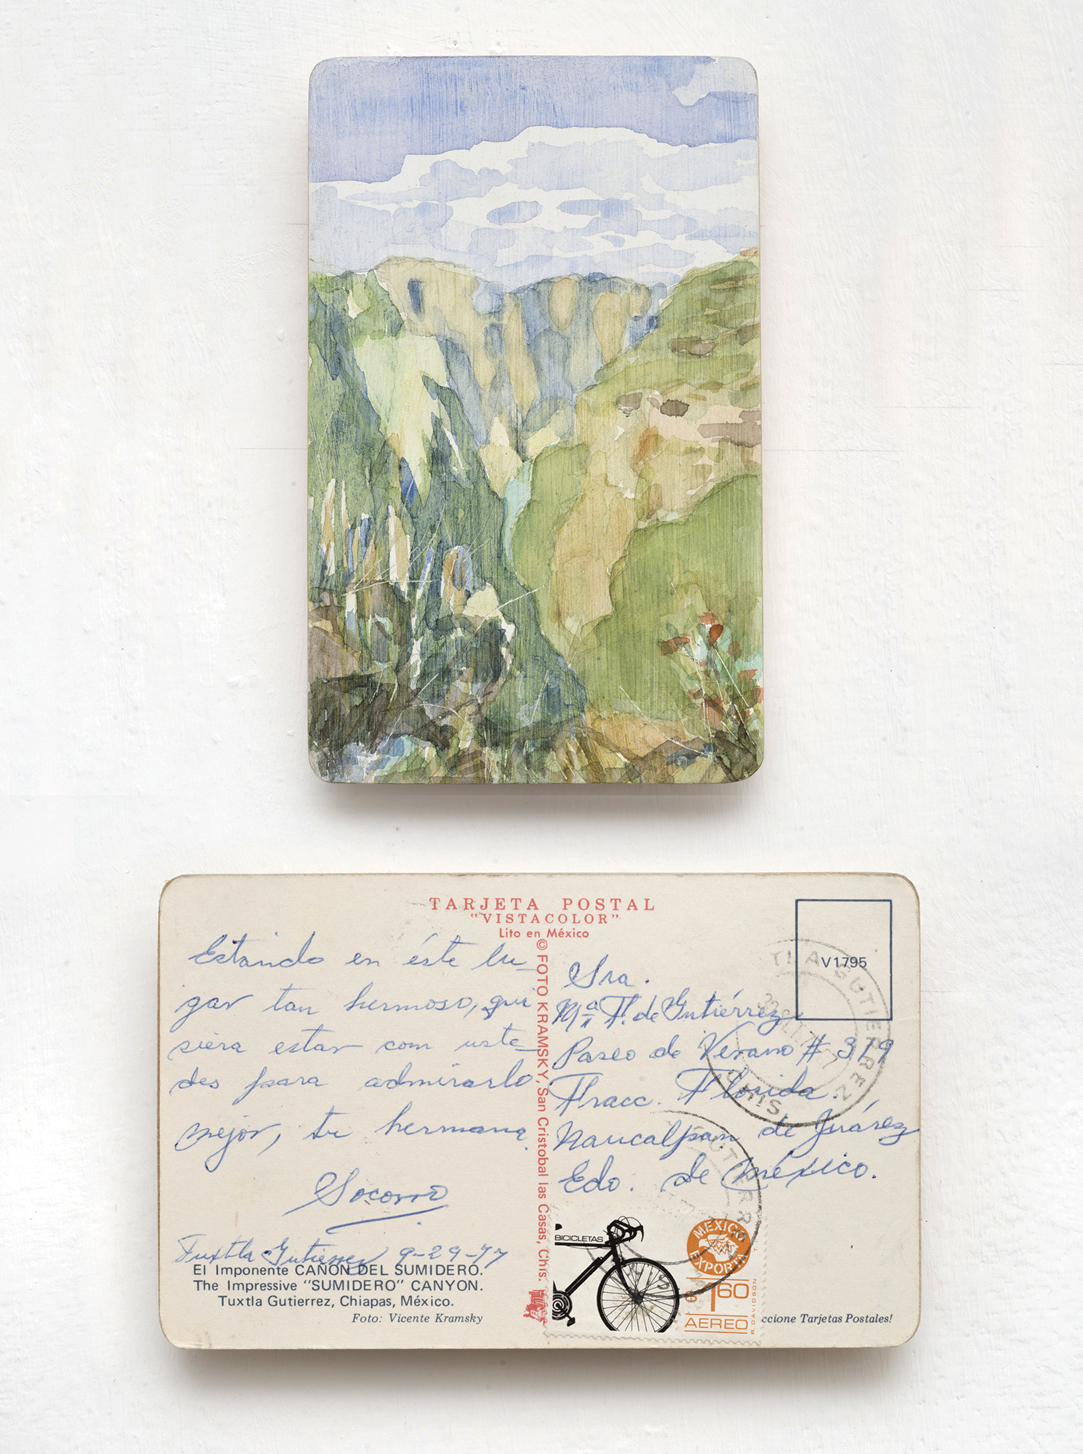 TARJETA POSTAL
"VISTACOLOR"
Lito en México
© FOTO KRAMSKY, San Cristobal las Casas, Chis.
Estando en éste lu-
gar tan hermoso, qui
siera estar con uste-
des para admirarlo
mejor, tu hermana.
Socorro
Tuxtla Gutierrez 9-29-77
El Imponente CAÑON DEL SUMIDERO.
The Impressive "SUMIDERO" CANYON.
Tuxtla Gutierrez, Chiapas, México.
Foto: Vicente Kramsky
V1795
Sra.
Mª T. de Gutiérrez
Paseo de Verano # 379
Fracc. Florida.
Naucalpan de Juárez
Edo. de México.
BICICLETAS
MEXICO
EXPORTA
1.60
AEREO
R. DAVIDSON
ccione Tarjetas Postales!
TUTLA GUTIERREZ
CHIS
GUTIERR